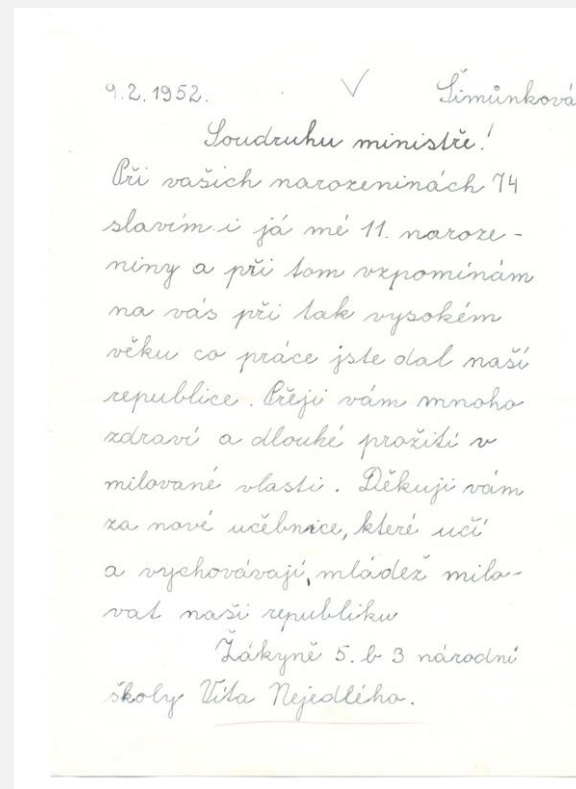 9.2.1952. V Šimůnková
Soudruhu ministře!
Při vašich narozeninách 74
slavím i já mé 11. naroze-
niny a při tom vzpomínám
na vás při tak vysokém
věku co práce jste dal naší
republice. Přeji vám mnoho
zdraví a dlouké prožití v
milované vlasti. Děkuji vám
za nové učebnice, které učí
a vychovávají, mládež milo-
vat naši republiku
Žákyně 5. b 3 národní
školy Víta Nejedlého.